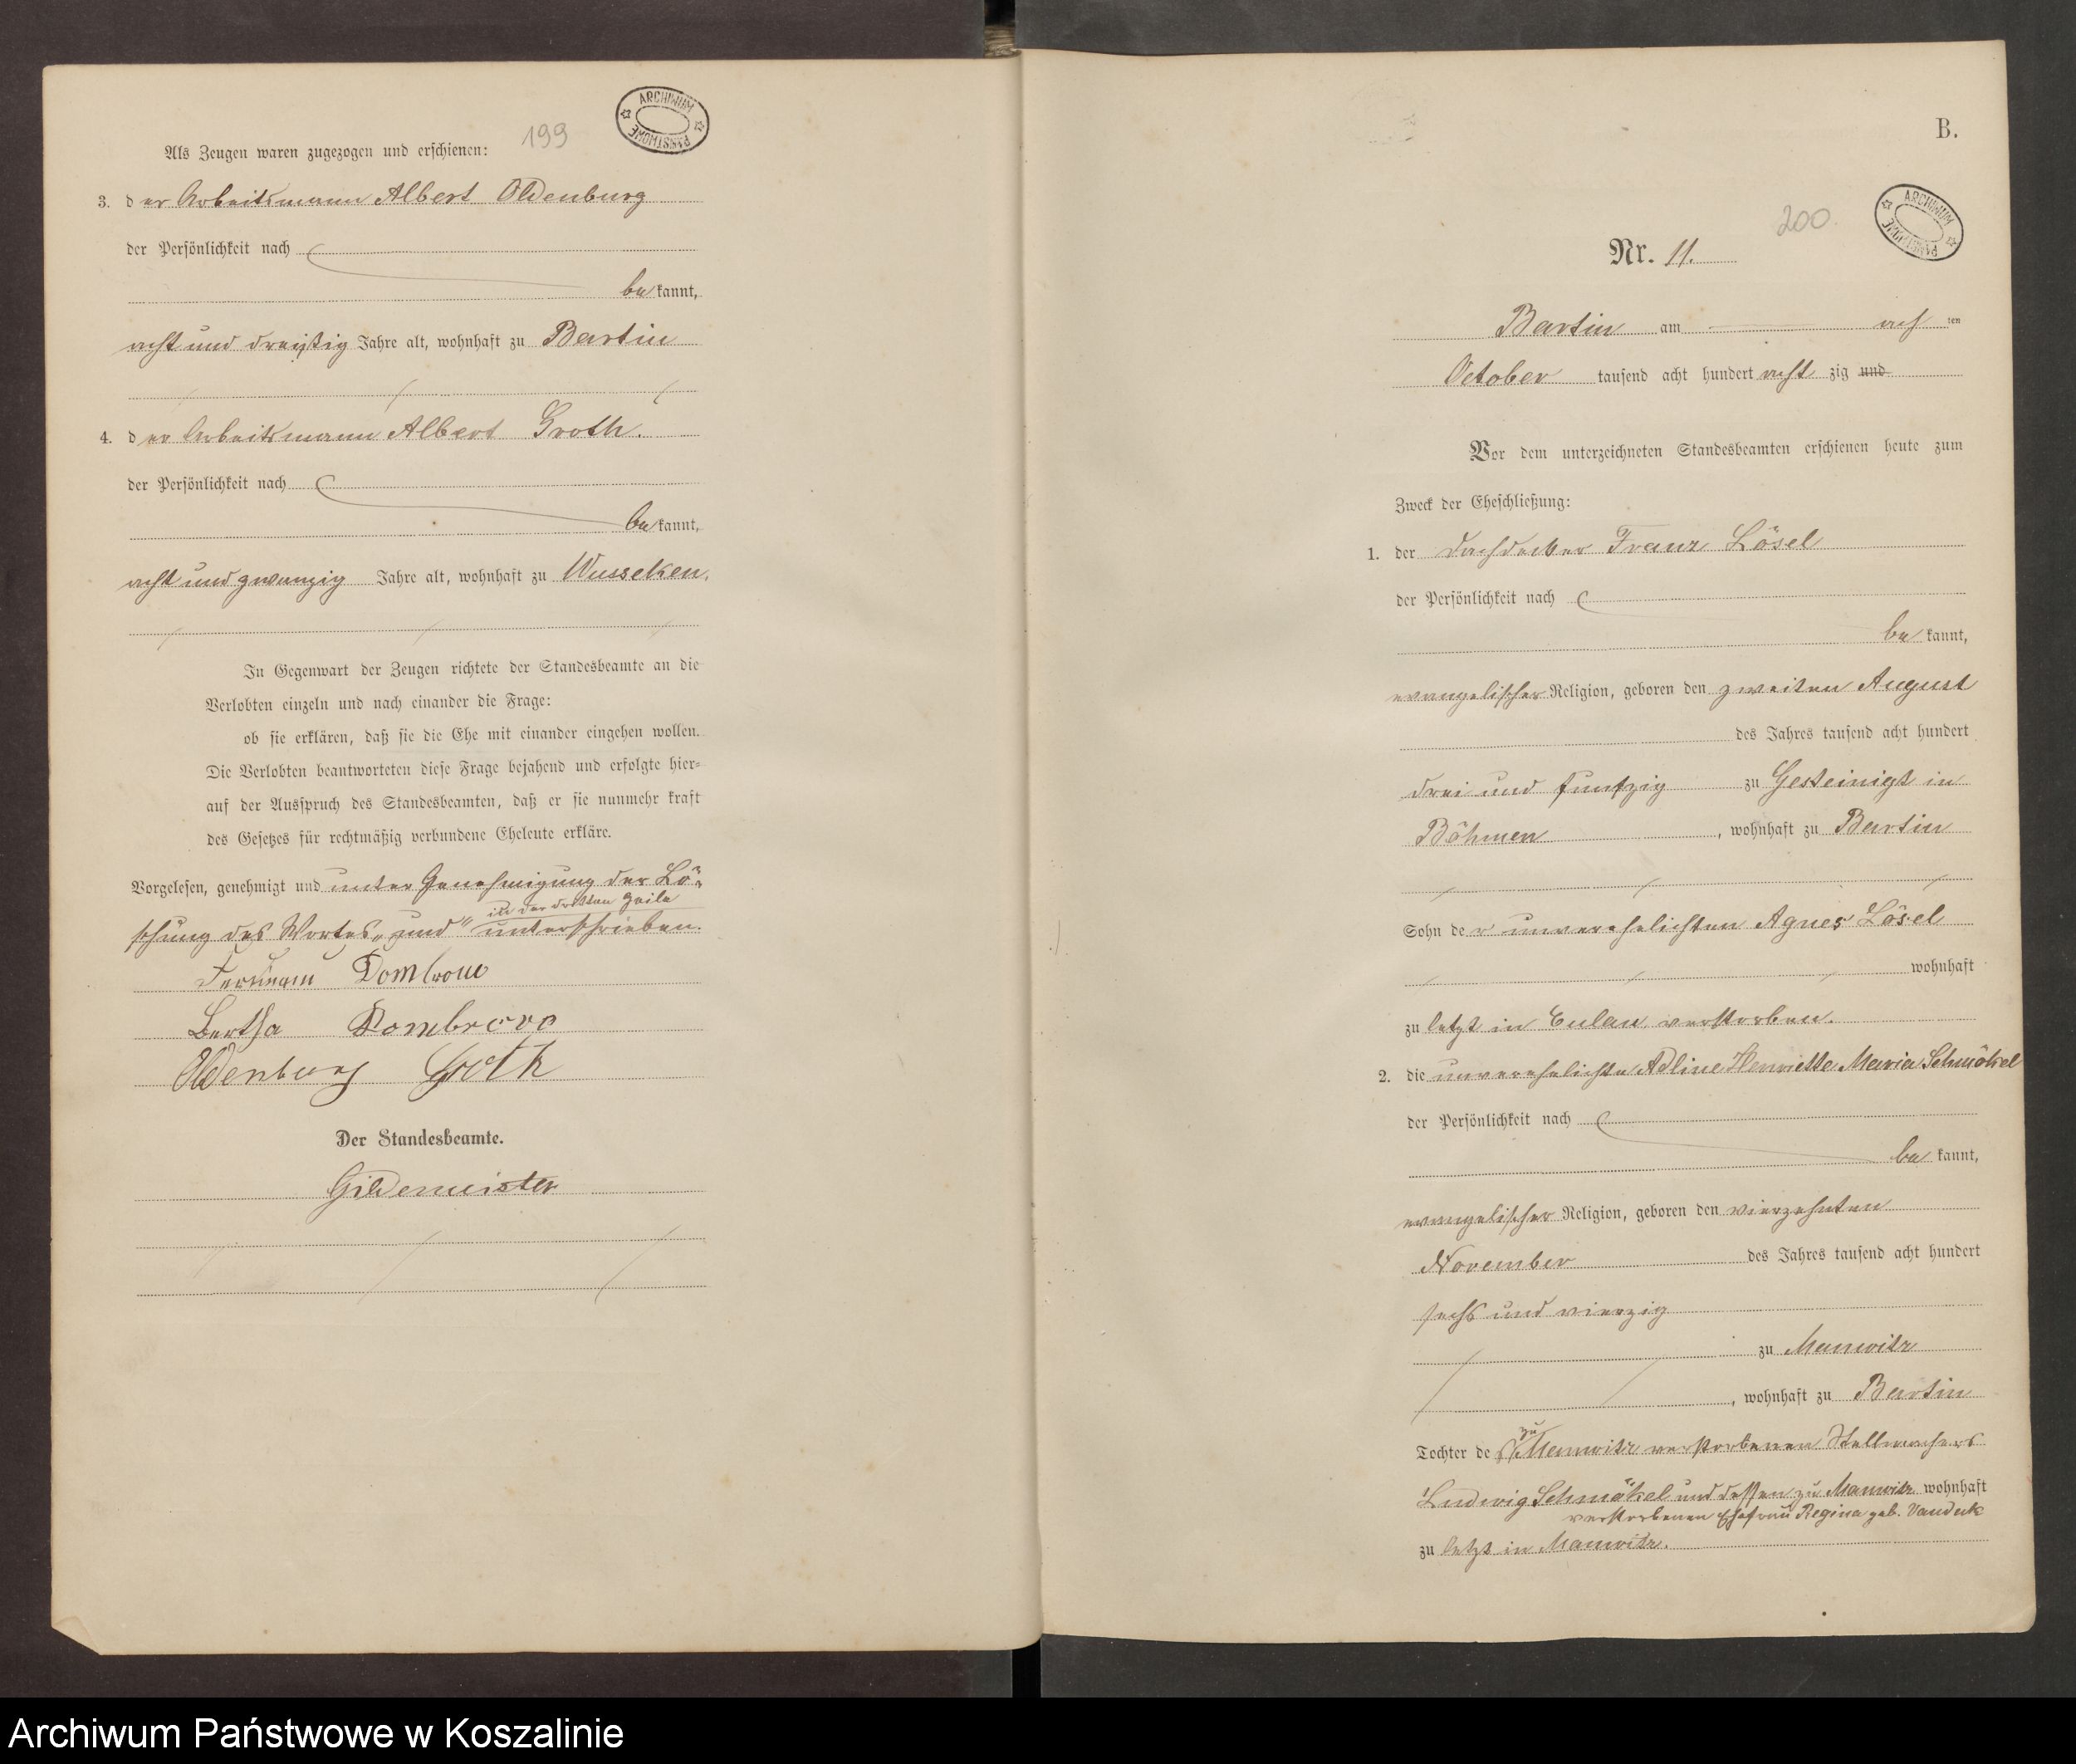 199
ARCHIWUM PAŃSTWOWE
Als Zeugen waren zugezogen und erschienen:
3. der Arbeitsmann Albert Oldenburg
der Persönlichkeit nach
bekannt,
acht und dreißig Jahre alt, wohnhaft zu Bartin
4. der Arbeitsmann Albert Groth.
der Persönlichkeit nach
bekannt,
acht und zwanzig Jahre alt, wohnhaft zu Wusseken.
In Gegenwart der Zeugen richtete der Standesbeamte an die
Verlobten einzeln und nach einander die Frage:
ob sie erklären, daß sie die Ehe mit einander eingehen wollen.
Die Verlobten beantworteten diese Frage bejahend und erfolgte hier-
auf der Ausspruch des Standesbeamten, daß er sie nunmehr kraft
des Gesetzes für rechtmäßig verbundene Eheleute erkläre.
Vorgelesen, genehmigt und unter Genehmigung der Lö-
in der dritten Zeile
schung des Wortes „und“ unterschrieben.
Dombrow
Bertha Dombrow
Oldenburg Groth
Der Standesbeamte.
Gildemeister
B.
200.
ARCHIWUM PAŃSTWOWE
Nr. 11.
Bartin am acht ten
October tausend acht hundert acht zig und
Vor dem unterzeichneten Standesbeamten erschienen heute zum
Zweck der Eheschließung:
1. der Dachdecker Franz Lösel
der Persönlichkeit nach
bekannt,
evangelischer Religion, geboren den zweiten August
des Jahres tausend acht hundert
drei und funfzig zu Gesteinigt in
Böhmen, wohnhaft zu Bartin
Sohn der unverehelichten Agnes Lösel
wohnhaft
zuletzt in Eulau verstorben.
2. die unverehelichte Adline Henriette Maria Schmökel
der Persönlichkeit nach
bekannt,
evangelischer Religion, geboren den vierzehnten
November des Jahres tausend acht hundert
sechs und vierzig
zu Manwitz
, wohnhaft zu Bartin
zu
Tochter des Manwitz verstorbenen Stellmachers
Ludwig Schmökel und dessen zu Manwitz wohnhaft
verstorbenen Ehefrau Regina geb. Vanduk
zuletzt in Manwitz.
Archiwum Państwowe w Koszalinie